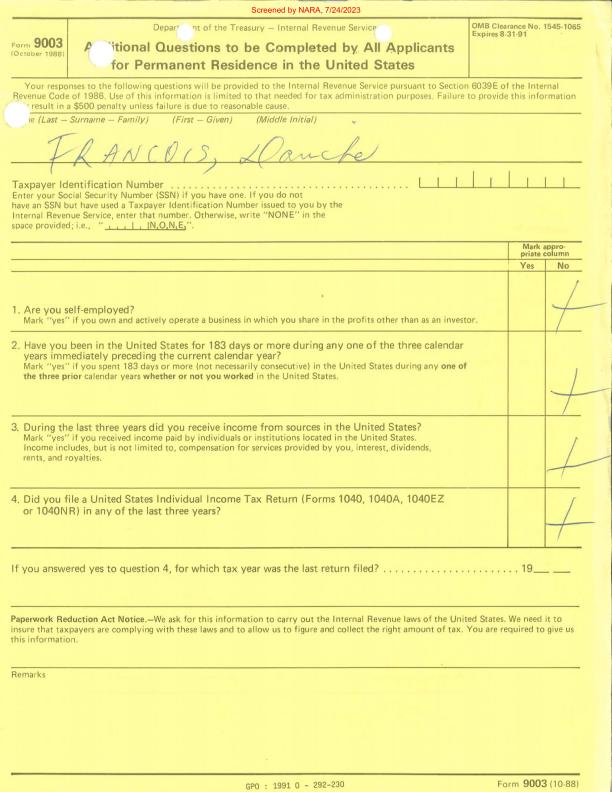 Screened by NARA, 7/24/2023
Form 9003
(October 1988)
of the Treasury — Internal Revenue Service
Questions to be Completed by All Applicants
for Permanent Residence in the United States
OMB Clearance No. 1545-1065
Expires 8-31-91
Your responses to the following questions will be provided to the Internal Revenue Service pursuant to Section 6039E of the Internal
Revenue Code of 1986. Use of this information is limited to that needed for tax administration purposes. Failure to provide this information
result in a $500 penalty unless failure is due to reasonable cause.
(Last — Surname — Family) (First — Given) (Middle Initial)
FRANCOIS,
Taxpayer Identification Number
Enter your Social Security Number (SSN) if you have one. If you do not
have an SSN but have used a Taxpayer Identification Number issued to you by the
Internal Revenue Service, enter that number. Otherwise, write "NONE" in the
space provided; i.e., " N,O,N,E,".
Mark appro-
priate column
Yes No
1. Are you self-employed?
Mark "yes" if you own and actively operate a business in which you share in the profits other than as an investor.
2. Have you been in the United States for 183 days or more during any one of the three calendar
years immediately preceding the current calendar year?
Mark "yes" if you spent 183 days or more (not necessarily consecutive) in the United States during any one of
the three prior calendar years whether or not you worked in the United States.
3. During the last three years did you receive income from sources in the United States?
Mark "yes" if you received income paid by individuals or institutions located in the United States.
Income includes, but is not limited to, compensation for services provided by you, interest, dividends,
rents, and royalties.
4. Did you file a United States Individual Income Tax Return (Forms 1040, 1040A, 1040EZ
or 1040NR) in any of the last three years?
If you answered yes to question 4, for which tax year was the last return filed? ........................ 19__ __
Paperwork Reduction Act Notice.—We ask for this information to carry out the Internal Revenue laws of the United States. We need it to
insure that taxpayers are complying with these laws and to allow us to figure and collect the right amount of tax. You are required to give us
this information.
Remarks
GPO : 1991 O - 292-230
Form 9003 (10-88)